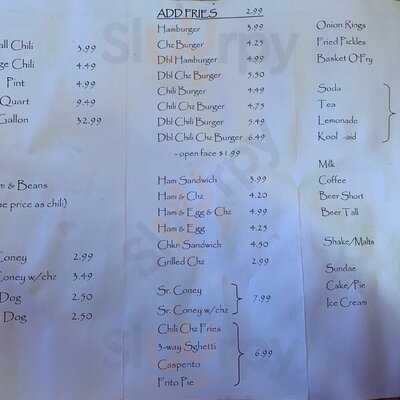 ll Chili 3.99
ge Chili 4.49
Pint 4.99
Quart 9.49
Gallon 32.99
m & Beans
e price as chili)
Coney 2.99
Coney w/chz 3.49
Dog 2.50
Dog 2.50
ADD FRIES 2.99
Hamburger 3.99
Chz Burger 4.25
Dbl Hamburger 4.99
Dbl Chz Burger 5.50
Chili Burger 4.49
Chili Chz Burger 4.75
Dbl Chili Burger 5.49
Dbl Chili Chz Burger 6.49
- open face $1.99
Ham Sandwich 3.99
Ham & Chz 4.20
Ham & Egg & Chz 4.99
Ham & Egg 4.25
Chkn Sandwich 4.50
Grilled Chz 2.99
Sr. Coney
Sr. Coney w/chz 7.99
Chili Chz Fries
3-way Sghetti 6.99
Caspento
Frito Pie
Onion Rings
Fried Pickles
Basket O'Fry
Soda
Tea
Lemonade
Kool -aid
Milk
Coffee
Beer Short
Beer Tall
Shake/Malts
Sundae
Cake/Pie
Ice Cream